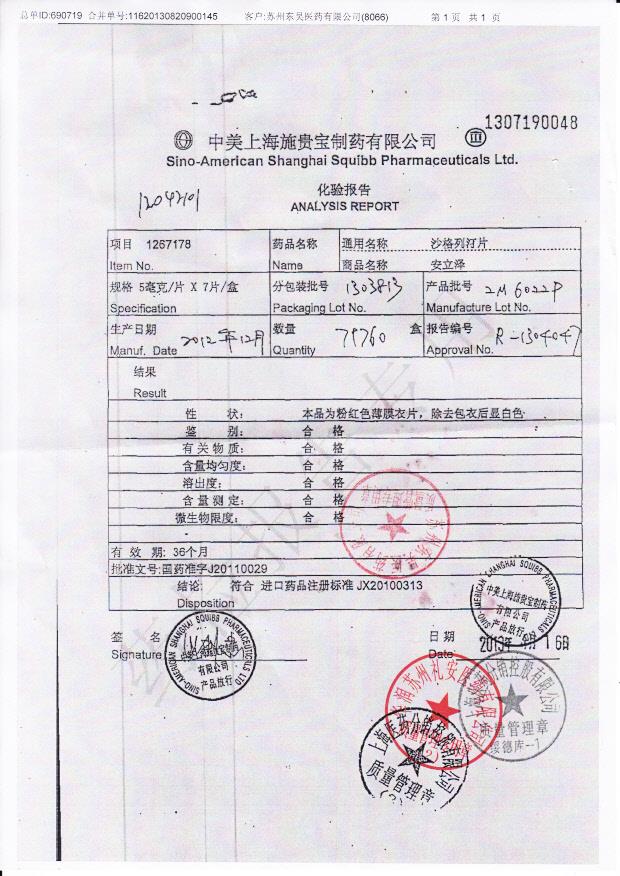 总单ID:690719 合并单号:11620130820900145 客户:苏州东吴医药有限公司(8066) 第1页 共1页
1307190048
中美上海施贵宝制药有限公司
Sino-American Shanghai Squibb Pharmaceuticals Ltd.
化验报告
ANALYSIS REPORT
12042101
项目 1267178 药品名称 通用名称 沙格列汀片
Item No. Name 商品名称 安立泽
规格 5毫克/片 X 7片/盒 分包装批号 1303813 产品批号 2M6022P
Specification Packaging Lot No. Manufacture Lot No.
生产日期 2012年12月 数量 79760 盒 报告编号 R-1304047
Manuf. Date Quantity Approval No.
结果
Result
性 状: 本品为粉红色薄膜衣片，除去包衣后显白色
鉴 别: 合 格
有关物质: 合 格
含量均匀度: 合 格
溶出度: 合 格
含量测定: 合 格
微生物限度: 合 格
有 效 期: 36个月
批准文号:国药准字J20110029
结论: 符合 进口药品注册标准 JX20100313
Disposition
签 名 日 期
Signature Date
SINO-AMERICAN SHANGHAI SQUIBB PHARMACEUTICALS LTD
中美上海施贵宝制药
有限公司
产品放行
SINO-AMERICAN SHANGHAI SQUIBB PHARMACEUTICALS LTD
中美上海施贵宝制药
有限公司
产品放行
质量管理章
绥德库--1
质量管理章
(3)
(2)